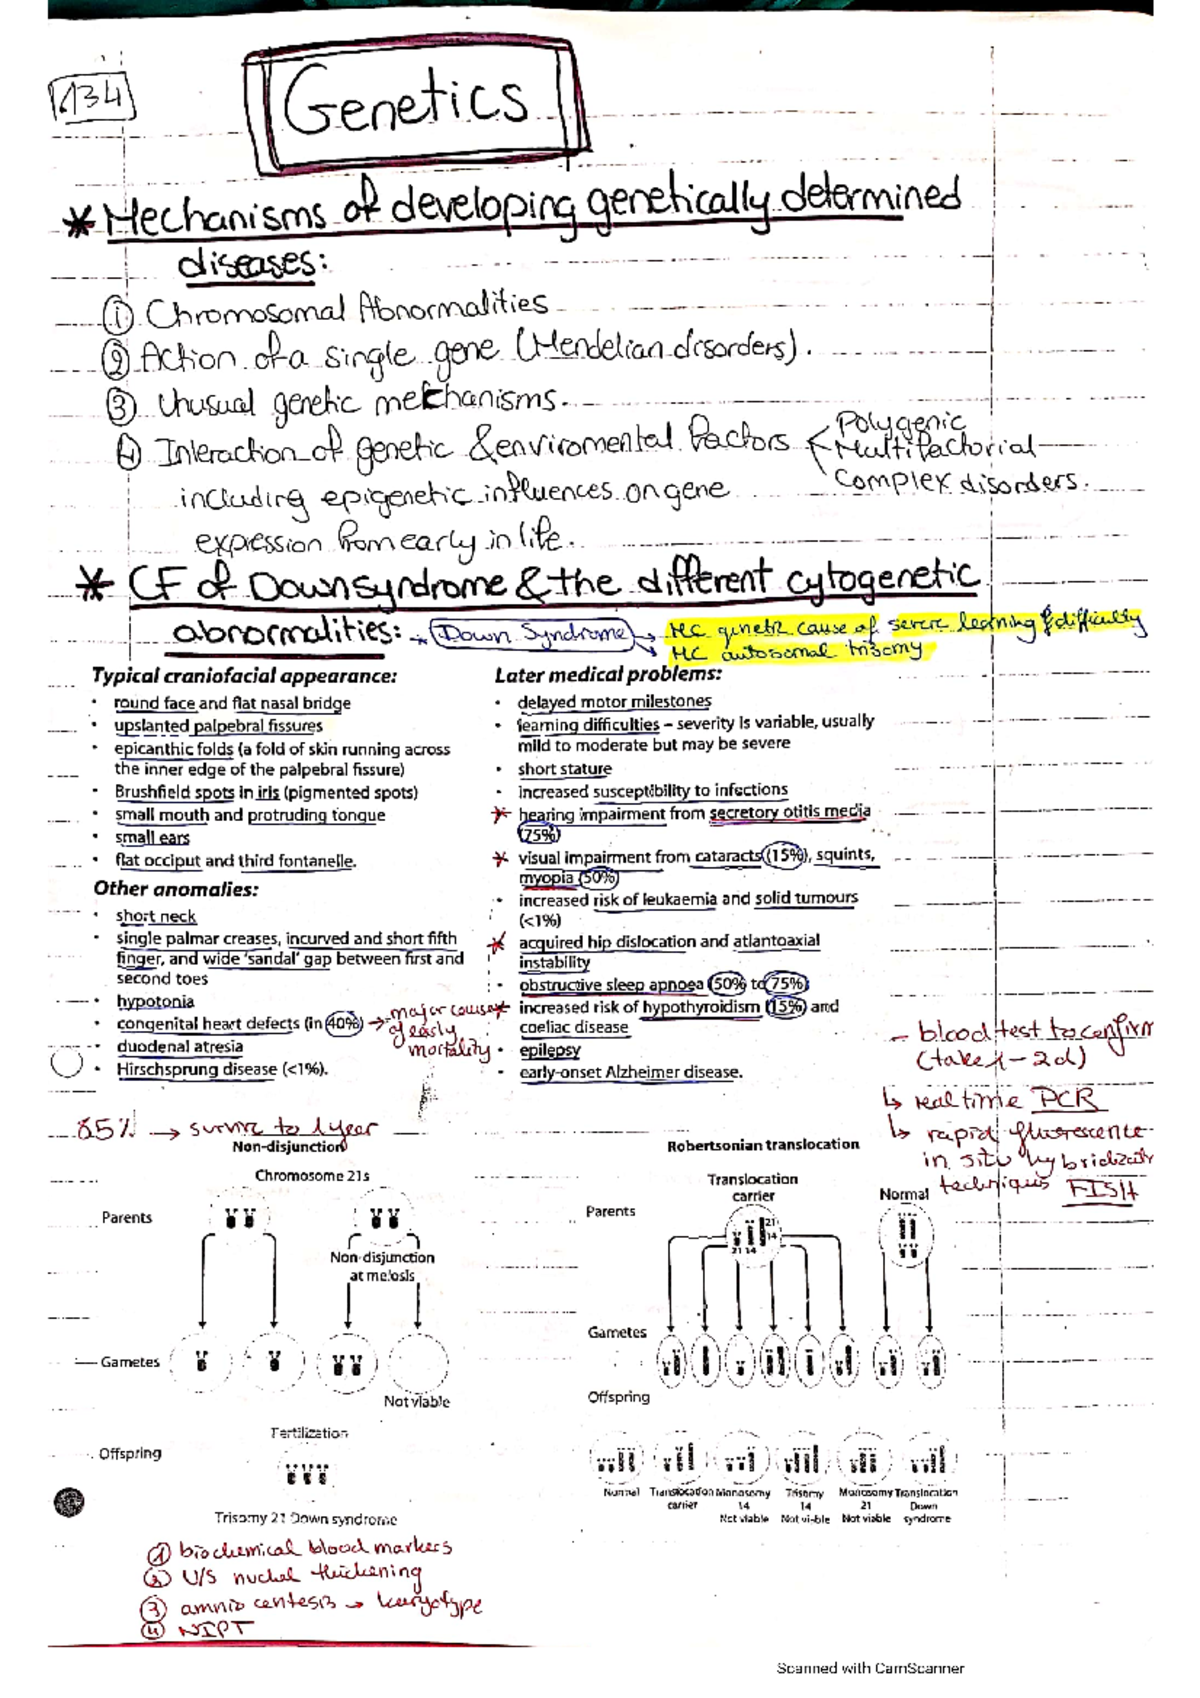 134
Genetics
* Mechanisms of developing genetically determined
diseases:
① Chromosomal Abnormalities
② Action of a single gene (Mendelian disorders).
③ Unusual genetic mekhanisms.
④ Interaction of genetic & enviromental factors < Polygenic
Multifactorial
Complex disorders.
including epigenetic influences on gene
expression from early in life.
* CF of Down syndrome & the different cytogenetic
abnormalities: → Down Syndrome → MC genetic cause of severe learning difficulty
→ MC autosomal trisomy
Typical craniofacial appearance:
• round face and flat nasal bridge
• upslanted palpebral fissures
• epicanthic folds (a fold of skin running across
the inner edge of the palpebral fissure)
• Brushfield spots in iris (pigmented spots)
• small mouth and protruding tongue
• small ears
• flat occiput and third fontanelle.
Other anomalies:
• short neck
• single palmar creases, incurved and short fifth
finger, and wide 'sandal' gap between first and
second toes
• hypotonia
• congenital heart defects (in 40%) → major cause
of early
mortality
• duodenal atresia
• Hirschsprung disease (<1%).
85% → survive to 1 year
Later medical problems:
• delayed motor milestones
• learning difficulties – severity is variable, usually
mild to moderate but may be severe
• short stature
• increased susceptibility to infections
* hearing impairment from secretory otitis media
(75%)
* visual impairment from cataracts (15%), squints,
myopia (50%)
• increased risk of leukaemia and solid tumours
(<1%)
* acquired hip dislocation and atlantoaxial
instability
• obstructive sleep apnoea (50% to 75%)
* increased risk of hypothyroidism (15%) and
coeliac disease
• epilepsy
• early-onset Alzheimer disease.
– blood test to confirm
(take 1 – 2 d)
↳ real time PCR
↳ rapid fluorescence
in situ hybridizati
techniques FISH
Non-disjunction
Chromosome 21s
Parents
Non-disjunction
at meiosis
Gametes
Not viable
Fertilization
Offspring
Trisomy 21 Down syndrome
Robertsonian translocation
Translocation
carrier
Normal
Parents
21
14
21 14
Gametes
Offspring
Normal
Translocation
carrier
Monosomy
14
Not viable
Trisomy
14
Not viable
Monosomy
21
Not viable
Translocation
Down
syndrome
① biochemical blood markers
② U/S nuchal thickening
③ amnio centesis → karyotype
④ NIPT
Scanned with CamScanner